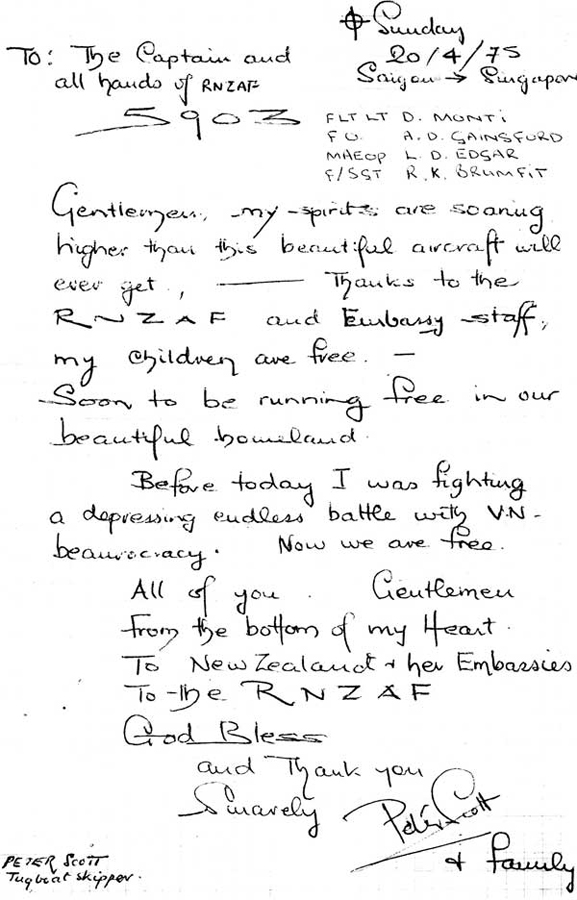 Sunday
20/4/75
Saigon → Singapore
To: The Captain and
all hands of RNZAF
5903
FLT LT D. MONTI
F O. A. D. GAINSFORD
MAEOP L. D. EDGAR
F/SGT R. K. BRUMFIT
Gentlemen, my spirits are soaring
higher than this beautiful aircraft will
ever get, —— Thanks to the
RNZAF and Embassy staff,
my children are free. —
Soon to be running free in our
beautiful homeland.
Before today I was fighting
a depressing endless battle with V.N-
beaurocracy. Now we are free.
All of you. Gentlemen
from the bottom of my Heart.
To New Zealand & her Embassies
To the RNZAF
God Bless
and Thank you
Sincerely
Peter Scott
& family
PETER SCOTT
Tugboat skipper.